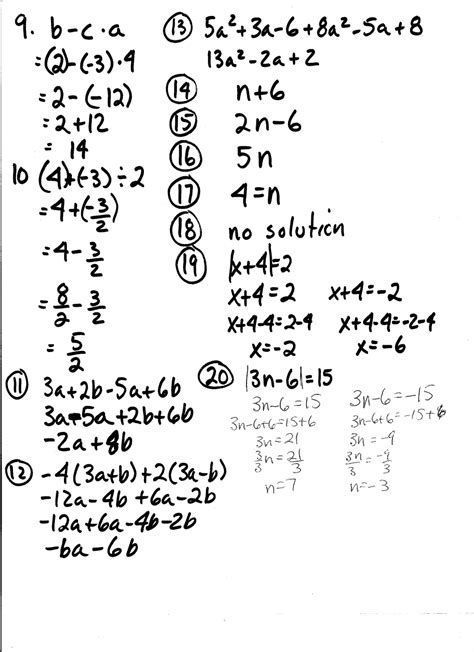 9. b-c·a
=(2)-(-3)·4
=2-(-12)
=2+12
= 14
10 (4)+(-3)÷2
=4+(-3/2)
=4-3/2
=8/2-3/2
=5/2
11 3a+2b-5a+6b
3a-5a+2b+6b
-2a+8b
12 -4(3a+b)+2(3a-b)
-12a-4b+6a-2b
-12a+6a-4b-2b
-6a-6b
13 5a²+3a-6+8a²-5a+8
13a²-2a+2
14 n+6
15 2n-6
16 5n
17 4=n
18 no solution
19 |x+4|=2
x+4=2 x+4=-2
x+4-4=2-4 x+4-4=-2-4
x=-2 x=-6
20 |3n-6|=15
3n-6=15 3n-6=-15
3n-6+6=15+6 3n-6+6=-15+6
3n=21 3n=-9
3n/3=21/3 3n/3=-9/3
n=7 n=-3